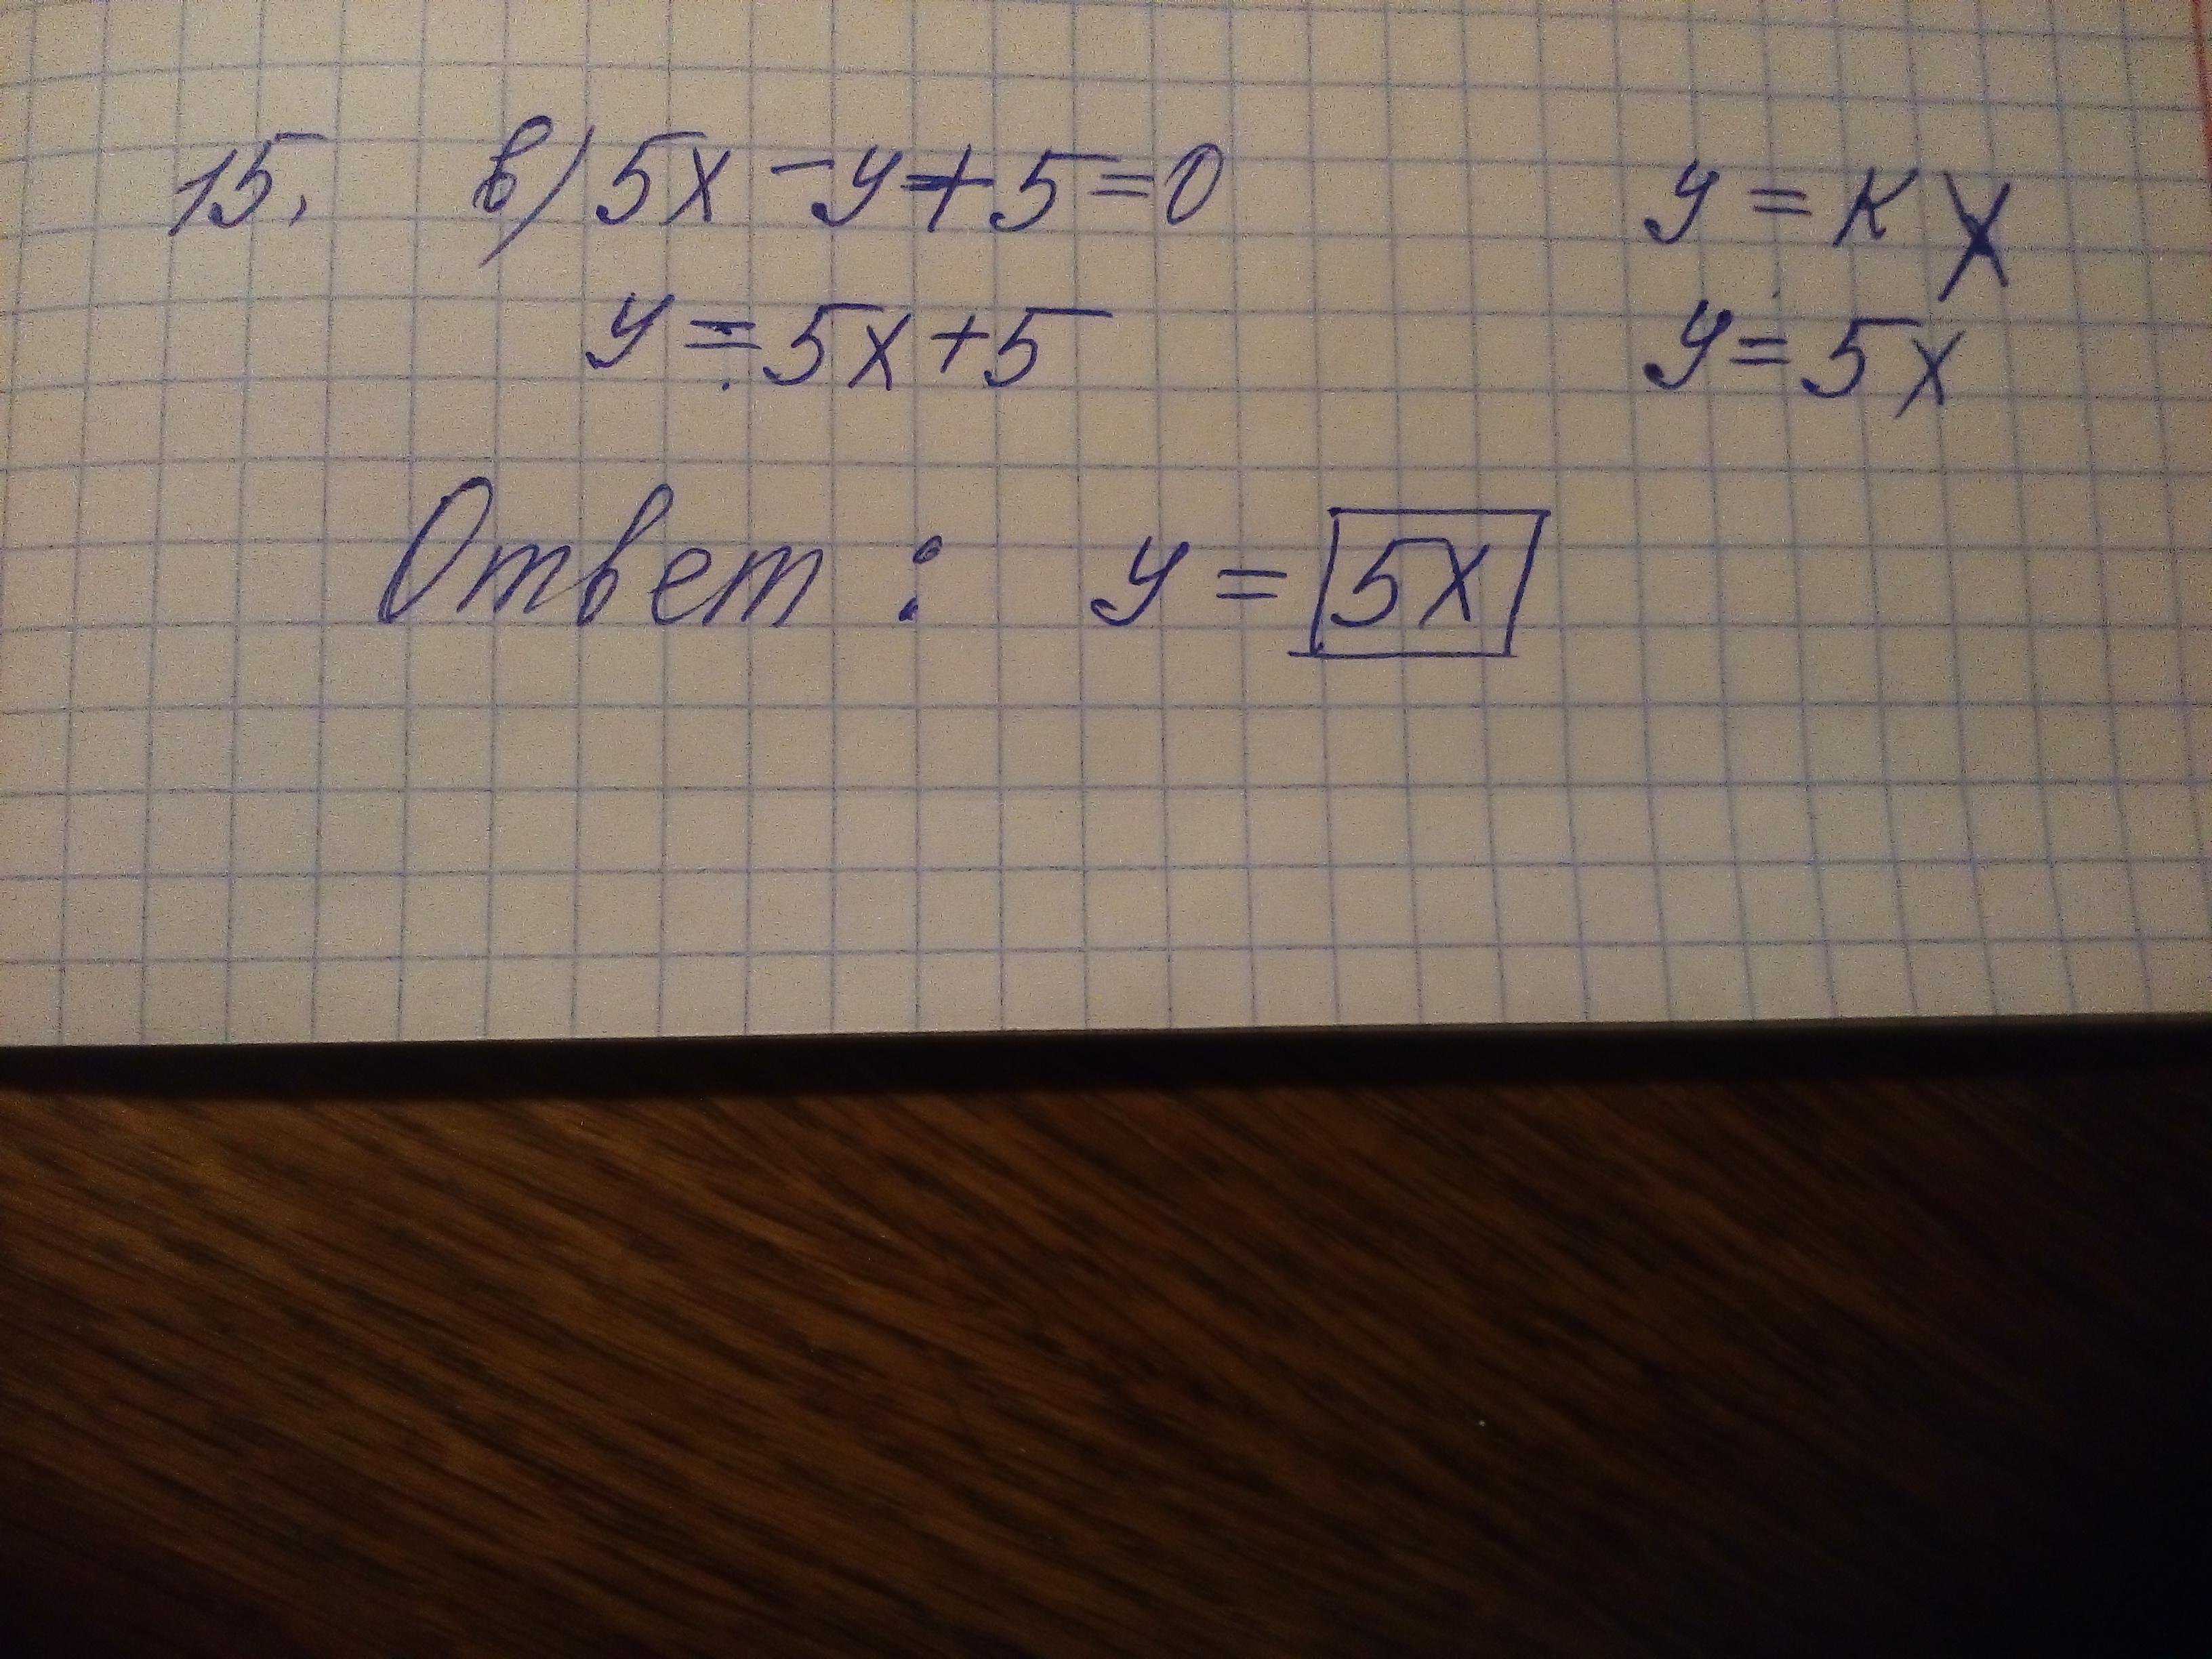 15. в) 5x - y + 5 = 0
y = 5x + 5
y = кx
y = 5x
Ответ: y = 5x